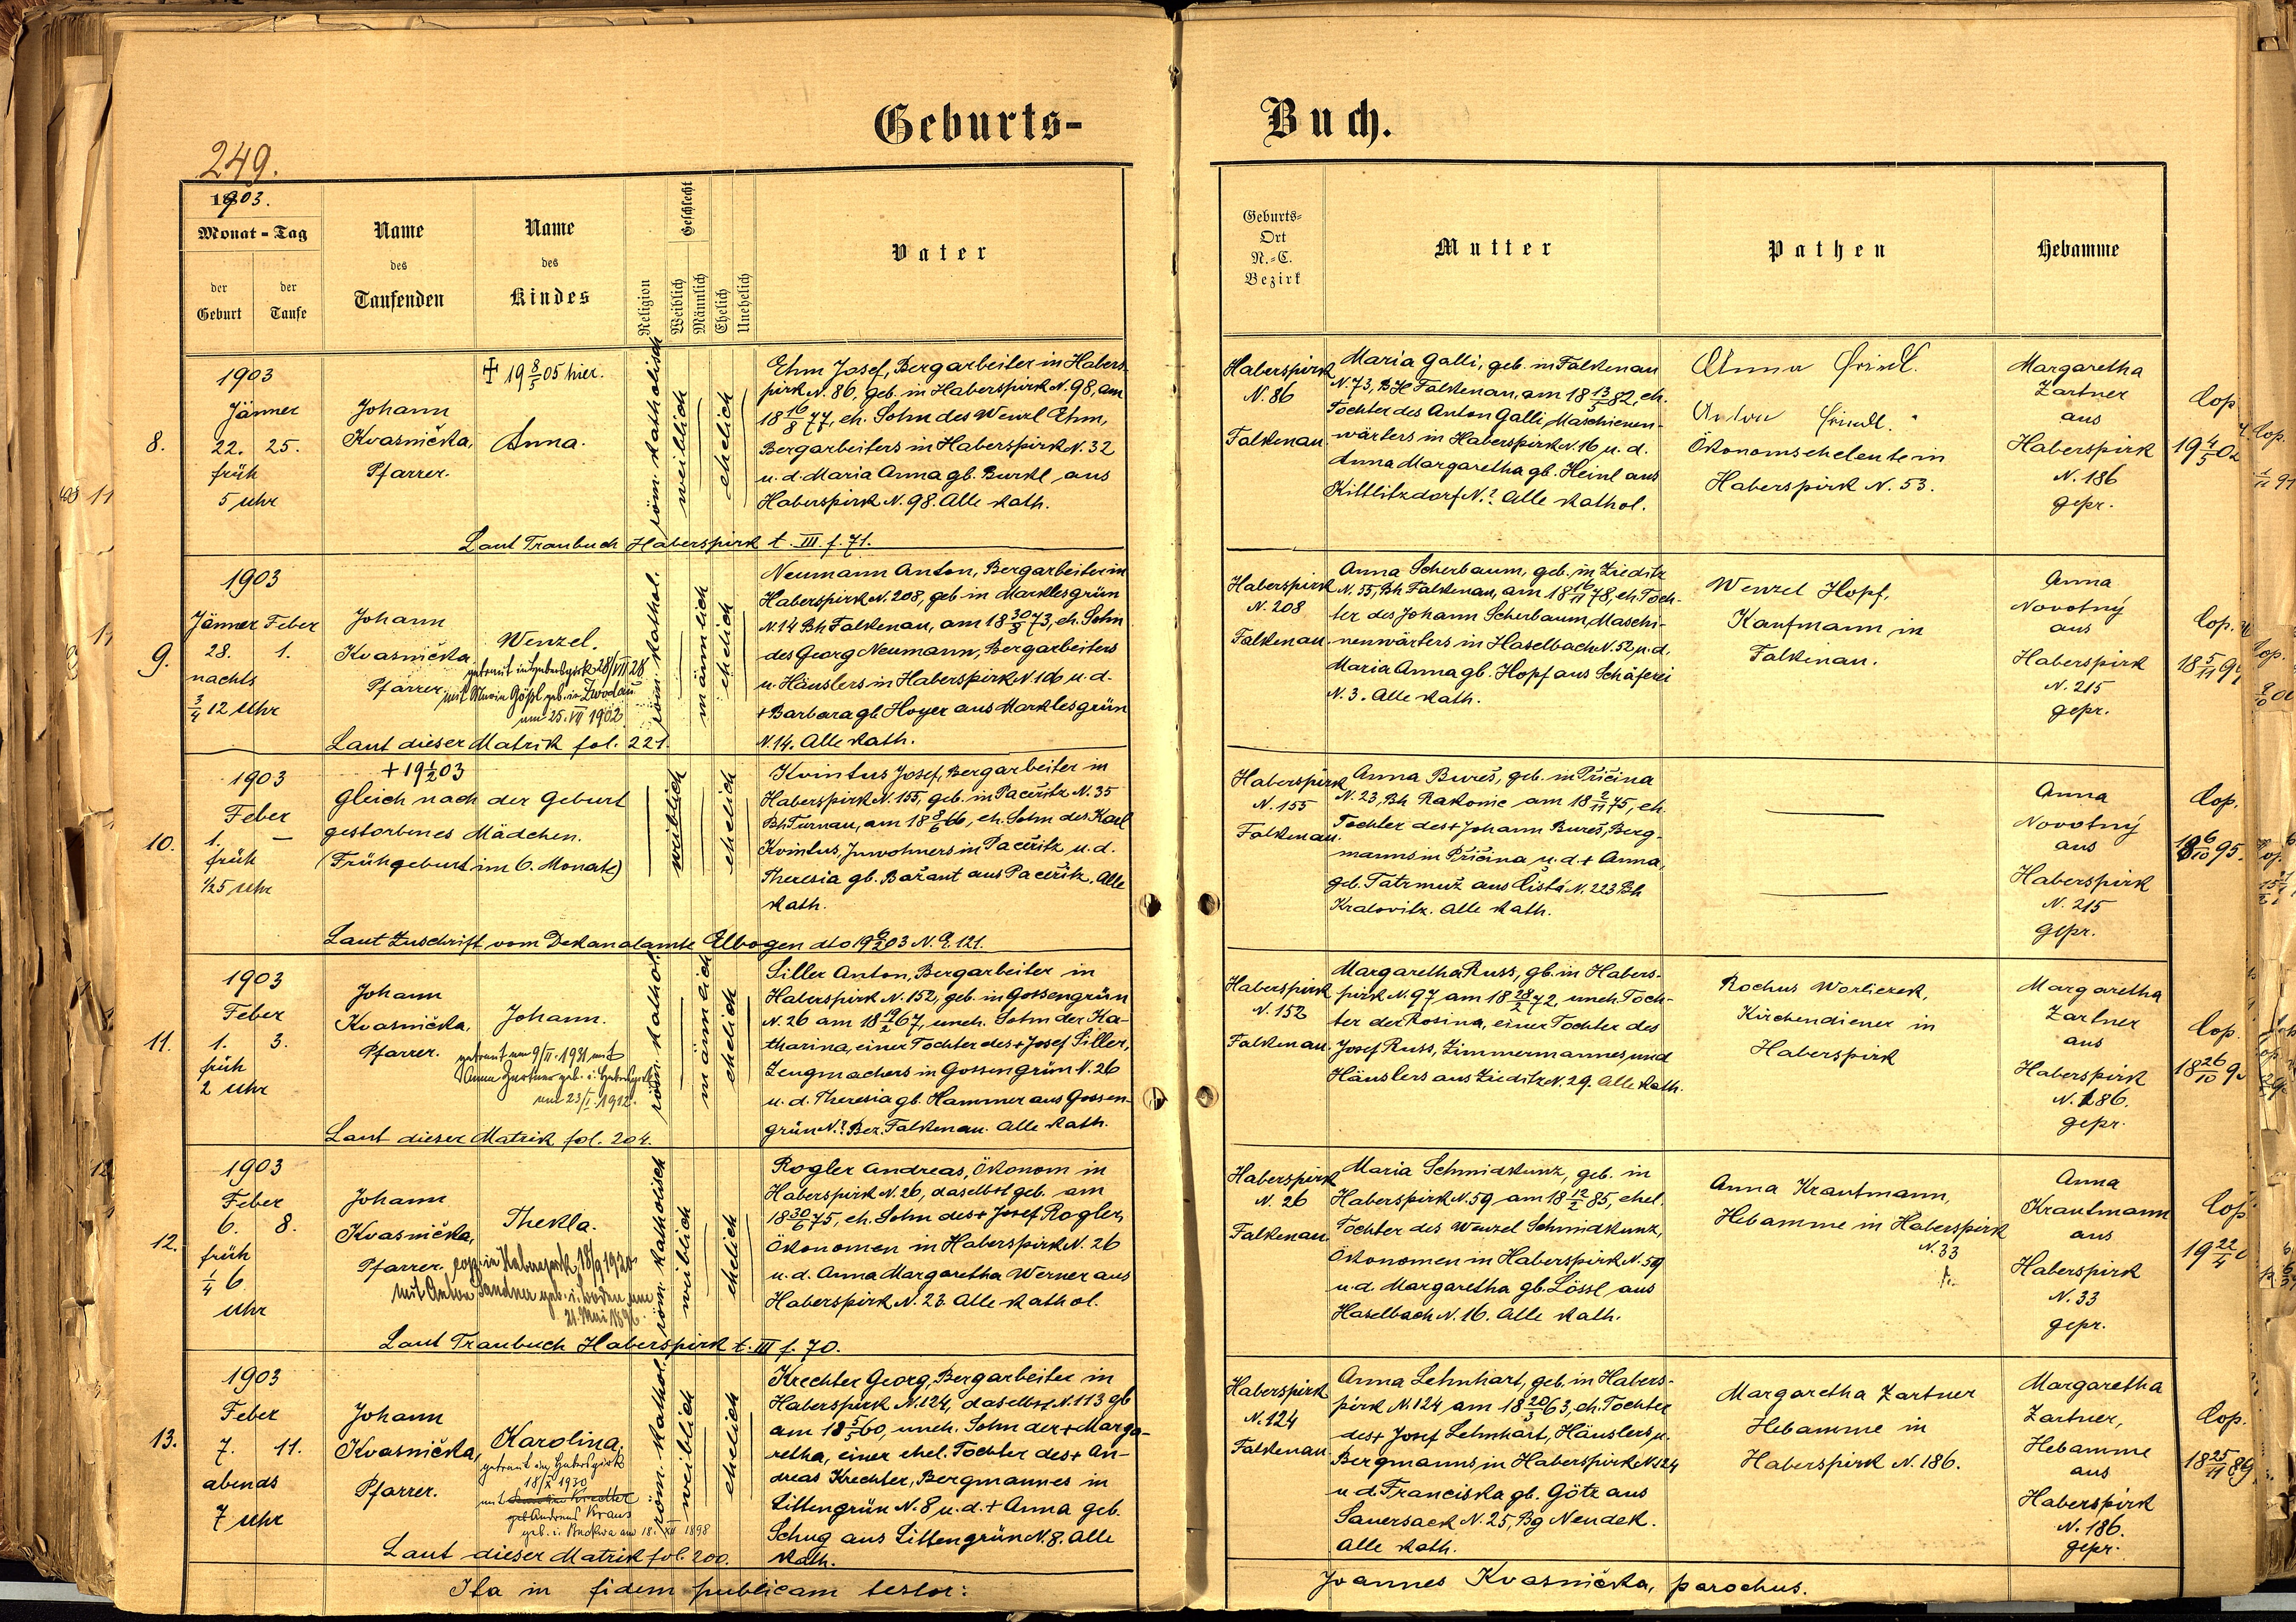 Geburts-
Buch.
249.
1903.
Monat - Tag
der Geburt
der Taufe
Name
des
Taufenden
Name
des
Kindes
Religion
Geschlecht
Weiblich
Männlich
Ehelich
Unehelich
Vater
Geburts-
Ort
N.-C.
Bezirk
Mutter
Pathen
Hebamme
8.
1903
Jänner
22. 25.
früh
5 Uhr
Johann
Kvasnička,
Pfarrer.
✠ 19 8/5 05 hier.
Anna.
röm. katholisch
weiblich
ehelich
Ehm Josef, Bergarbeiter in Habers-
pirk N. 86, geb. in Haberspirk N. 98, am
18 16/8 77, eh. Sohn des Wenzl Ehm,
Bergarbeiters in Haberspirk N. 32
u. d. Maria Anna gb. Burkl aus
Haberspirk N. 98. Alle kath.
Laut Traubuch Haberspirk t. III f. 71.
Haberspirk
N. 86
Falkenau
Maria Galli, geb. in Falkenau
N. 73, BH Falkenau, am 18 13/5 82, eh.
Tochter des Anton Galli, Maschienen-
wärters in Haberspirk N. 16 u. d.
Anna Margaretha gb. Heinl aus
Kittlitzdorf N.? Alle kathol.
Anna
Anton
Ökonomseheleute in
Haberspirk N. 53.
Margaretha
Zartner
aus
Haberspirk
N. 186
gepr.
Cop.
19 4/5 02
9.
1903
Jänner Feber
28. 1.
nachts
3/4 12 Uhr
Johann
Kvasnička
Pfarrer.
Wenzel.
getraut in Haberspirk 28/VII 28
mit Maria Gößl geb. in Zwodau
am 25. VII 1902
röm. kathol.
männlich
ehelich
Neumann Anton, Bergarbeiter in
Haberspirk N. 208, geb. in Marklesgrün
N. 14 Bh Falkenau, am 18 30/8 73, eh. Sohn
des Georg Neumann, Bergarbeiters
u. Häuslers in Haberspirk N. 106 u. d.
+ Barbara gb. Hoyer aus Marklesgrün
N. 14. Alle kath.
Laut dieser Matrik fol. 221.
Haberspirk
N. 208
Falkenau
Anna Scherbaum, geb. in Zieditz
N. 55, Bh Falkenau, am 18 16/11 78, eh. Toch-
ter des Johann Scherbaum, Maschi-
nenwärters in Haselbach N. 52 u. d.
Maria Anna gb. Hopf aus Schäferei
N. 3. Alle kath.
Wenzel Hopf,
Kaufmann in
Falkenau.
Anna
Novotný
aus
Haberspirk
N. 215
gepr.
Cop.
18 5/11 9
10.
1903
Feber
1. —
früh
1/2 5 Uhr
+ 19 1/2 03
Gleich nach der Geburt
gestorbenes Mädchen.
(Frühgeburt im 6. Monate)
weiblich
ehelich
Kvintus Josef, Bergarbeiter in
Haberspirk N. 155, geb. in Paceřitz N. 35
Bh Turnau, am 18 8/6 66, eh. Sohn des Karl
Kvintus, Inwohners in Paceřitz u. d.
Theresia gb. Bažant aus Paceřitz. Alle
kath.
Laut Zuschrift vom Dekanalamte Elbogen dto 19 9/2 03 N. E. 121.
Haberspirk
N. 155
Falkenau.
Anna Bureš, geb. in Příčina
N. 23, Bh Rakonic am 18 2/11 75, eh.
Tochter des + Johann Bureš, Berg-
manns in Příčina u. d. + Anna,
geb. Tatrmuž aus Čistá N. 223 Bh
Kralovitz. Alle kath.
Anna
Novotný
aus
Haberspirk
N. 215
gepr.
Cop.
18 6/10 95.
11.
1903
Feber
1. 3.
früh
2 Uhr
Johann
Kvasnička,
Pfarrer.
Johann.
getraut am 9/II. 1931 mit
Anna Zartner geb. i. Haberspirk
am 23/I. 1912.
röm. kathol.
männlich
ehelich
Siller Anton, Bergarbeiter in
Haberspirk N. 152, geb. in Gossengrün
N. 26 am 18 19/2 67, uneh. Sohn der Ka-
tharina, einer Tochter des + Josef Siller,
Zeugmachers in Gossengrün N. 26
u. d. Theresia gb. Hammer aus Gossen-
grün N.? Bez. Falkenau. Alle kath.
Laut dieser Matrik fol. 204.
Haberspirk
N. 152
Falkenau.
Margaretha Russ, gb. in Habers-
pirk N. 97 am 18 28/2 72, uneh. Toch-
ter der Rosina, einer Tochter des
Josef Russ, Zimmermannes und
Häuslers aus Zieditz N. 29. Alle kath.
Rochus Worlierek,
Kirchendiener in
Haberspirk
Margaretha
Zartner
aus
Haberspirk
N. 186.
gepr.
Cop.
18 26/10 9
12.
1903
Feber
6. 8.
früh
1/4 6
Uhr
Johann
Kvasnička,
Pfarrer.
Thekla.
cop. in Haberspirk 18/9 1920
mit Anton Sandner geb. i. Boden am
21. Mai 1896.
röm. katholisch
weiblich
ehelich
Rogler Andreas, Ökonom in
Haberspirk N. 26, daselbst geb. am
18 30/6 75, eh. Sohn des + Josef Rogler,
Ökonomen in Haberspirk N. 26
u. d. Anna Margaretha Werner aus
Haberspirk N. 23. Alle kathol.
Laut Traubuch Haberspirk t. III f. 70.
Haberspirk
N. 26
Falkenau.
Maria Schmidkunz, geb. in
Haberspirk N. 59 am 18 12/2 85, ehel.
Tochter des Wenzel Schmidkunz,
Ökonomen in Haberspirk N. 59
u. d. Margaretha gb. Lössl aus
Haselbach N. 16. Alle kath.
Anna Krautmann,
Hebamme in Haberspirk
N. 33
Anna
Krautmann
aus
Haberspirk
N. 33
gepr.
Cop.
19 22/4
13.
1903
Feber
7. 11.
abends
7 Uhr
Johann
Kvasnička,
Pfarrer.
Karolina,
getraut in Haberspirk
18/X 1930
mit
Andreas Kraus
geb. i. Buckwa am 18. XII 1898
röm. kathol.
weiblich
ehelich
Krechter Georg, Bergarbeiter in
Haberspirk N. 124, daselbst N. 113 gb
am 18 5/5 60, uneh. Sohn der + Marga-
retha, einer ehel. Tochter des + An-
dreas Krechter, Bergmannes in
Littengrün N. 8 u. d. + Anna geb.
Schug aus Littengrün N. 8. Alle
kath.
Laut dieser Matrik fol. 200.
Haberspirk
N. 124
Falkenau
Anna Lehnhart, geb. in Habers-
pirk N. 124 am 18 20/3 63, eh. Tochter
des + Josef Lehnhart, Häuslers u.
Bergmanns in Haberspirk N. 124
u d. Franciska gb. Götz aus
Sauersack N. 25, Bg Neudek.
Alle kath.
Margaretha Zartner
Hebamme in
Haberspirk N. 186.
Margaretha
Zartner,
Hebamme
aus
Haberspirk
N. 186.
gepr.
Cop.
18 25/11 89.
Ita in fidem publicam testor:
Joannes Kvasnička, parochus.